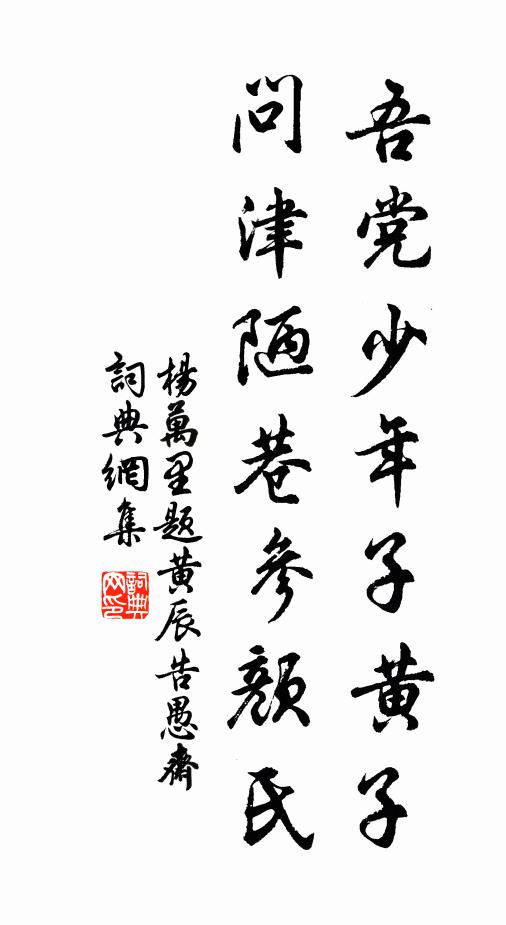 吾党少年子黄子
问津陋巷参颜氏
楊萬里题黄辰告愚齋
詞典網集
詞典网印